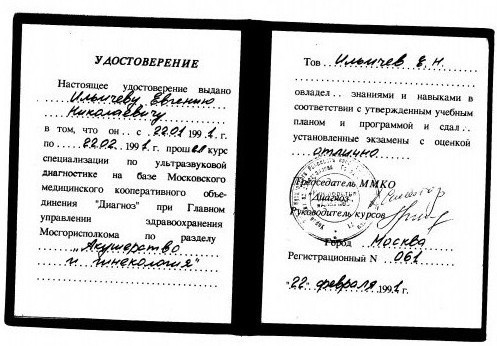 УДОСТОВЕРЕНИЕ
Настоящее удостоверение выдано
Ильичеву Евгению
Николаевичу
в том, что он.. с 22.01 1991. г.
по 22.02. 1991. г. прошел курс
специализации по ультразвуковой
диагностике на базе Московского
медицинского кооперативного объе-
динения "Диагноз" при Главном
управлении здравоохранения
Мосгорисполкома по разделу
„Акушерство
и гинекология"
Тов Ильичев Е.Н.
овладел.. знаниями и навыками в
соответствии с утвержденным учебным
планом и программой и сдал..
установленные экзамены с оценкой
отлично.
Председатель ММКО
Диагноз
Руководитель курсов
Город Москва
Регистрационный N 061
"22" февраля 1991. г.